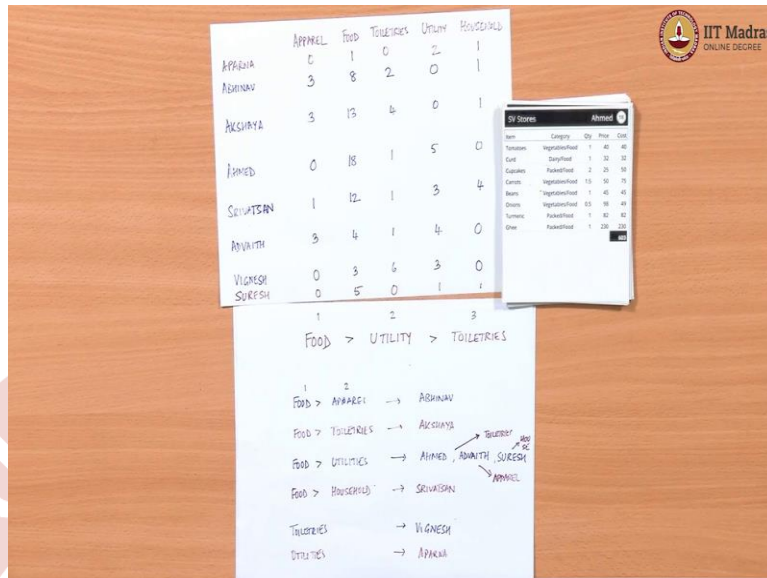 IIT Madras
ONLINE DEGREE
APPAREL FOOD TOILETRIES UTILITY HOUSEHOLD
APARNA 0 1 0 2 1
ABHINAV 3 8 2 0 1
AKSHAYA 3 13 4 0 1
AHMED 0 18 1 5 0
SRIVATSAN 1 12 1 3 4
ADVAITH 3 4 1 4 0
VIGNESH 0 3 6 3 0
SURESH 0 5 0 1 1
SV Stores Ahmed
Item Category Qty Price Cost
Tomatoes Vegetables/Food 1 40 40
Curd Dairy/Food 1 32 32
Cupcakes Packed/Food 2 25 50
Carrots Vegetables/Food 1.5 50 75
Beans Vegetables/Food 1 45 45
Onions Vegetables/Food 0.5 98 49
Turmeric Packed/Food 1 82 82
Ghee Packed/Food 1 230 230
603
1 2 3
FOOD > UTILITY > TOILETRIES
1 2
FOOD > APPAREL → ABHINAV
FOOD > TOILETRIES → AKSHAYA
TOILETRIES
FOOD > UTILITIES → AHMED, ADVAITH, SURESH
APPAREL
FOOD > HOUSEHOLD → SRIVATSAN
TOILETRIES → VIGNESH
UTILITIES → APARNA